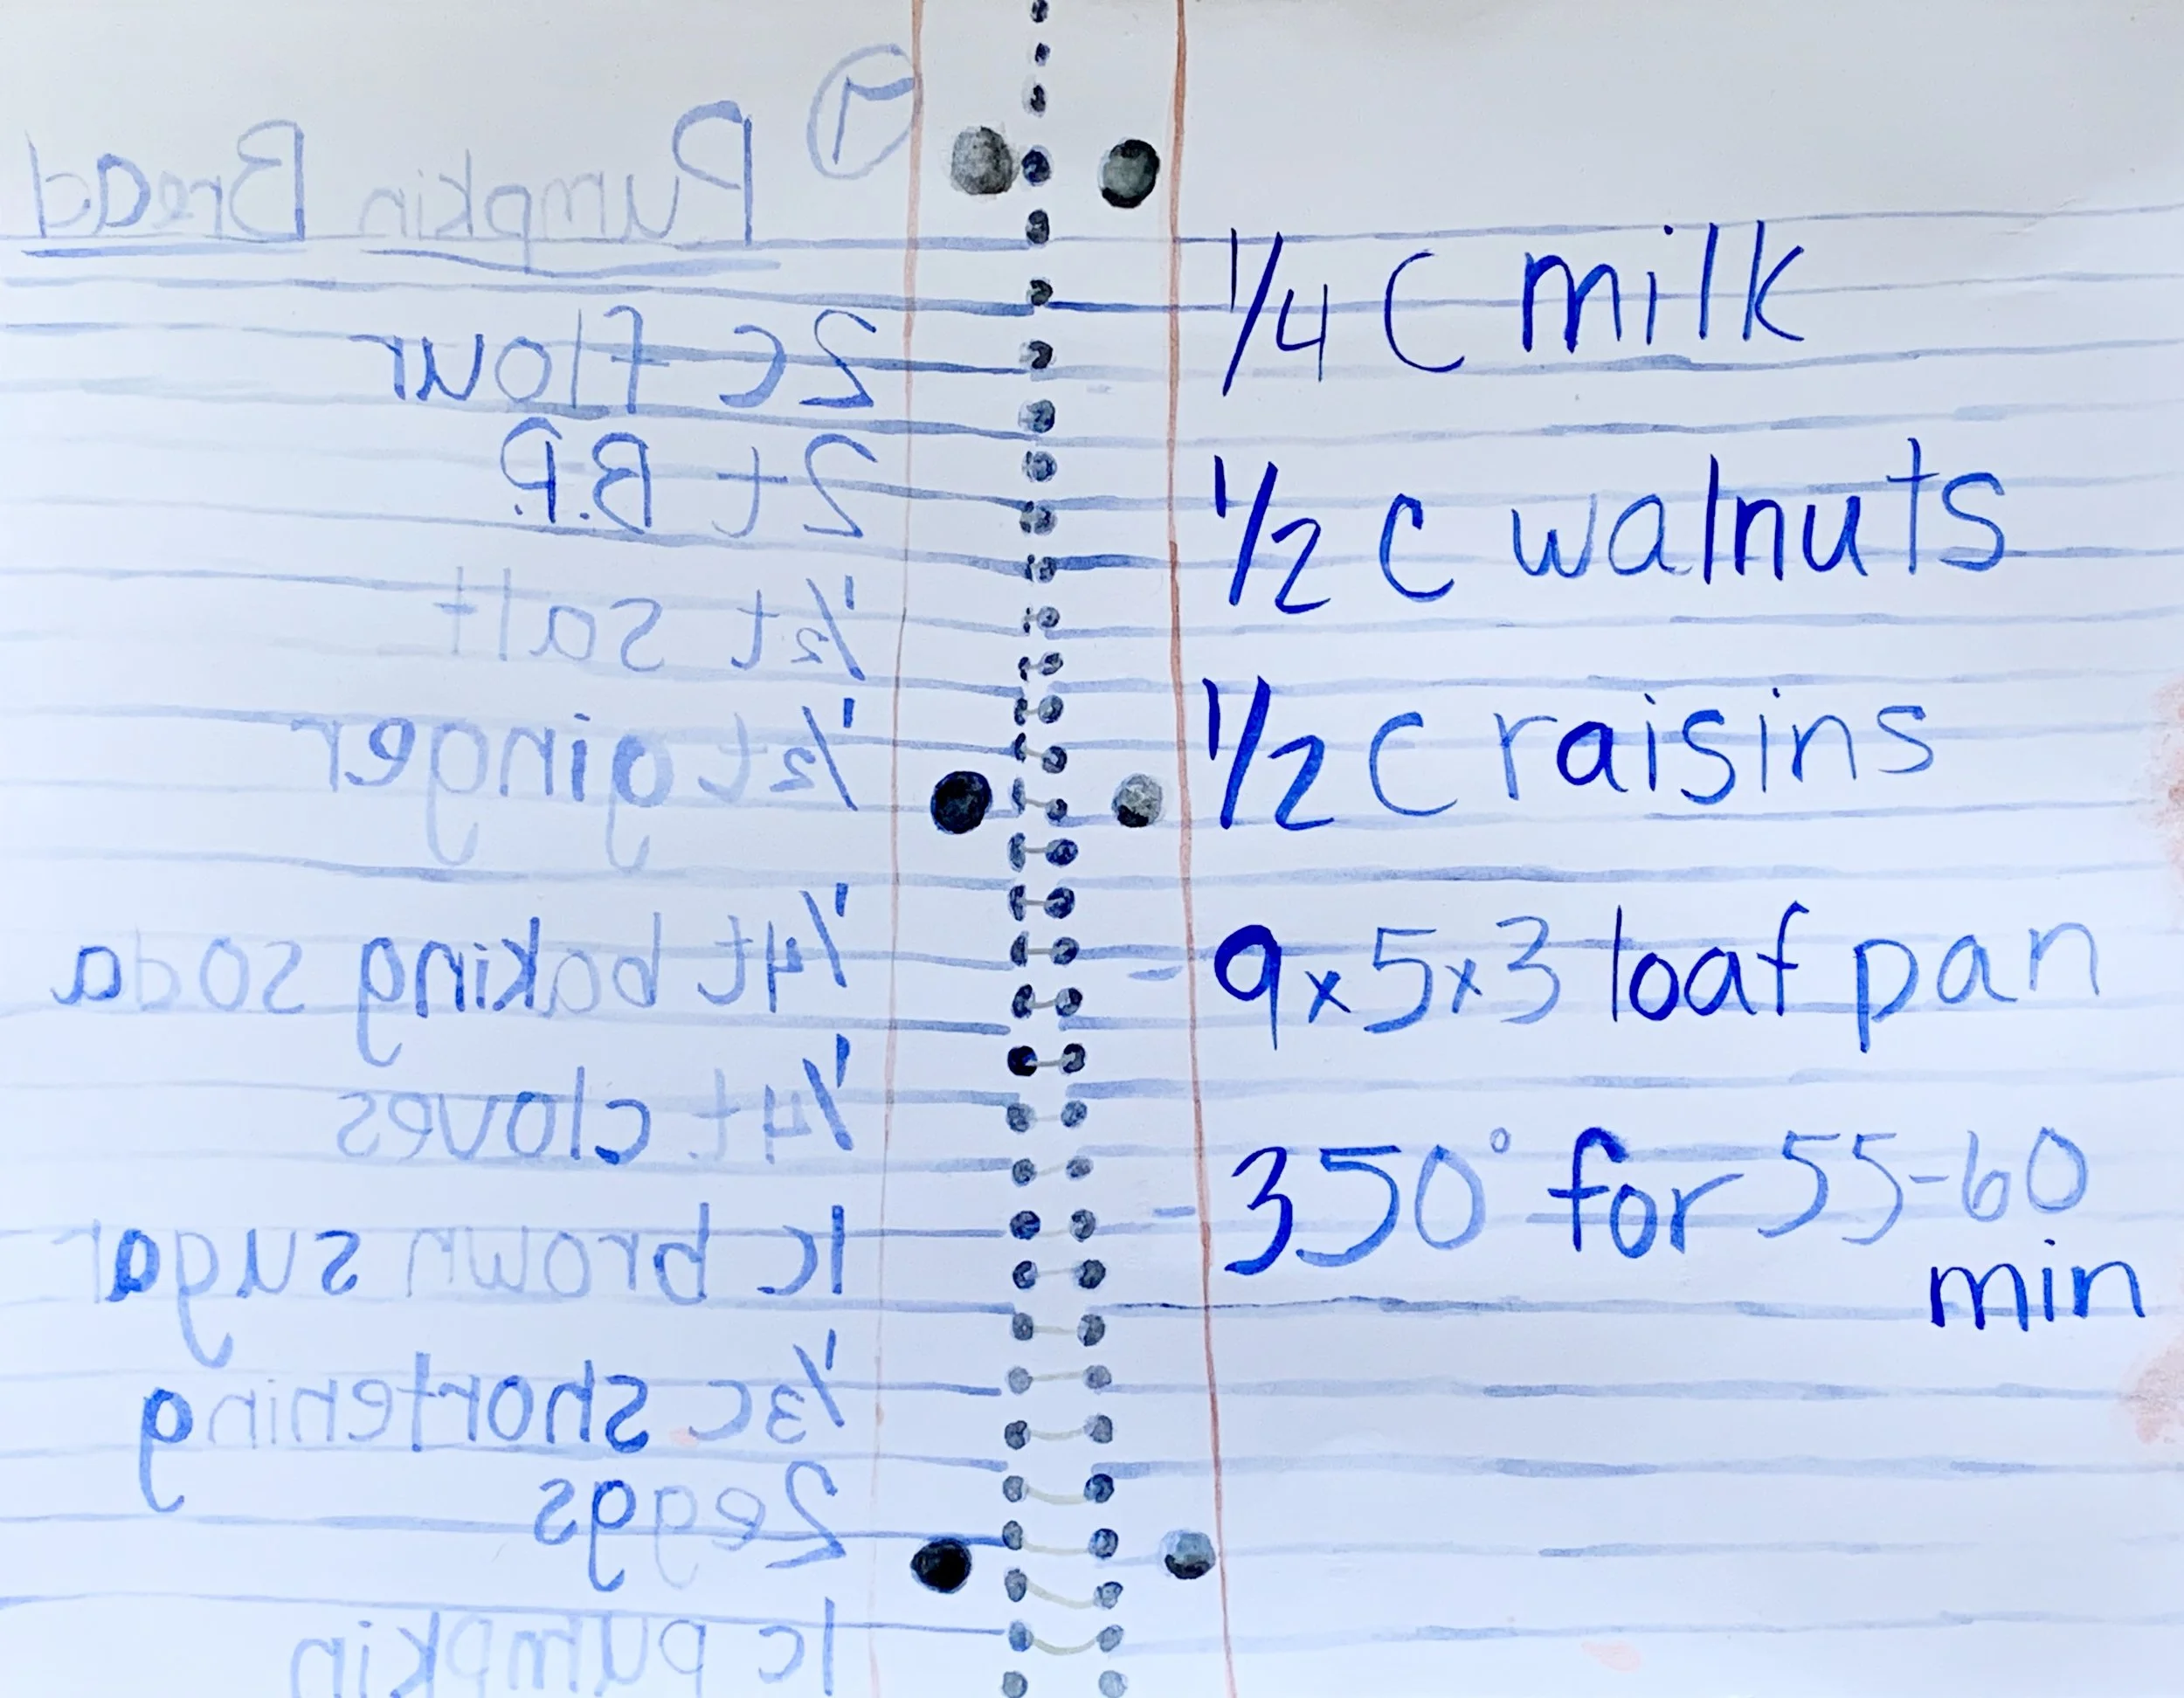 7
Pumpkin Bread
2c flour
2t B.P.
1/2t salt
1/2t ginger
1/4t baking soda
1/4t cloves
1c brown sugar
1/3c shortening
2eggs
1c pumpkin
1/4 c milk
1/2 c walnuts
1/2 c raisins
9x5x3 loaf pan
350° for 55-60
min